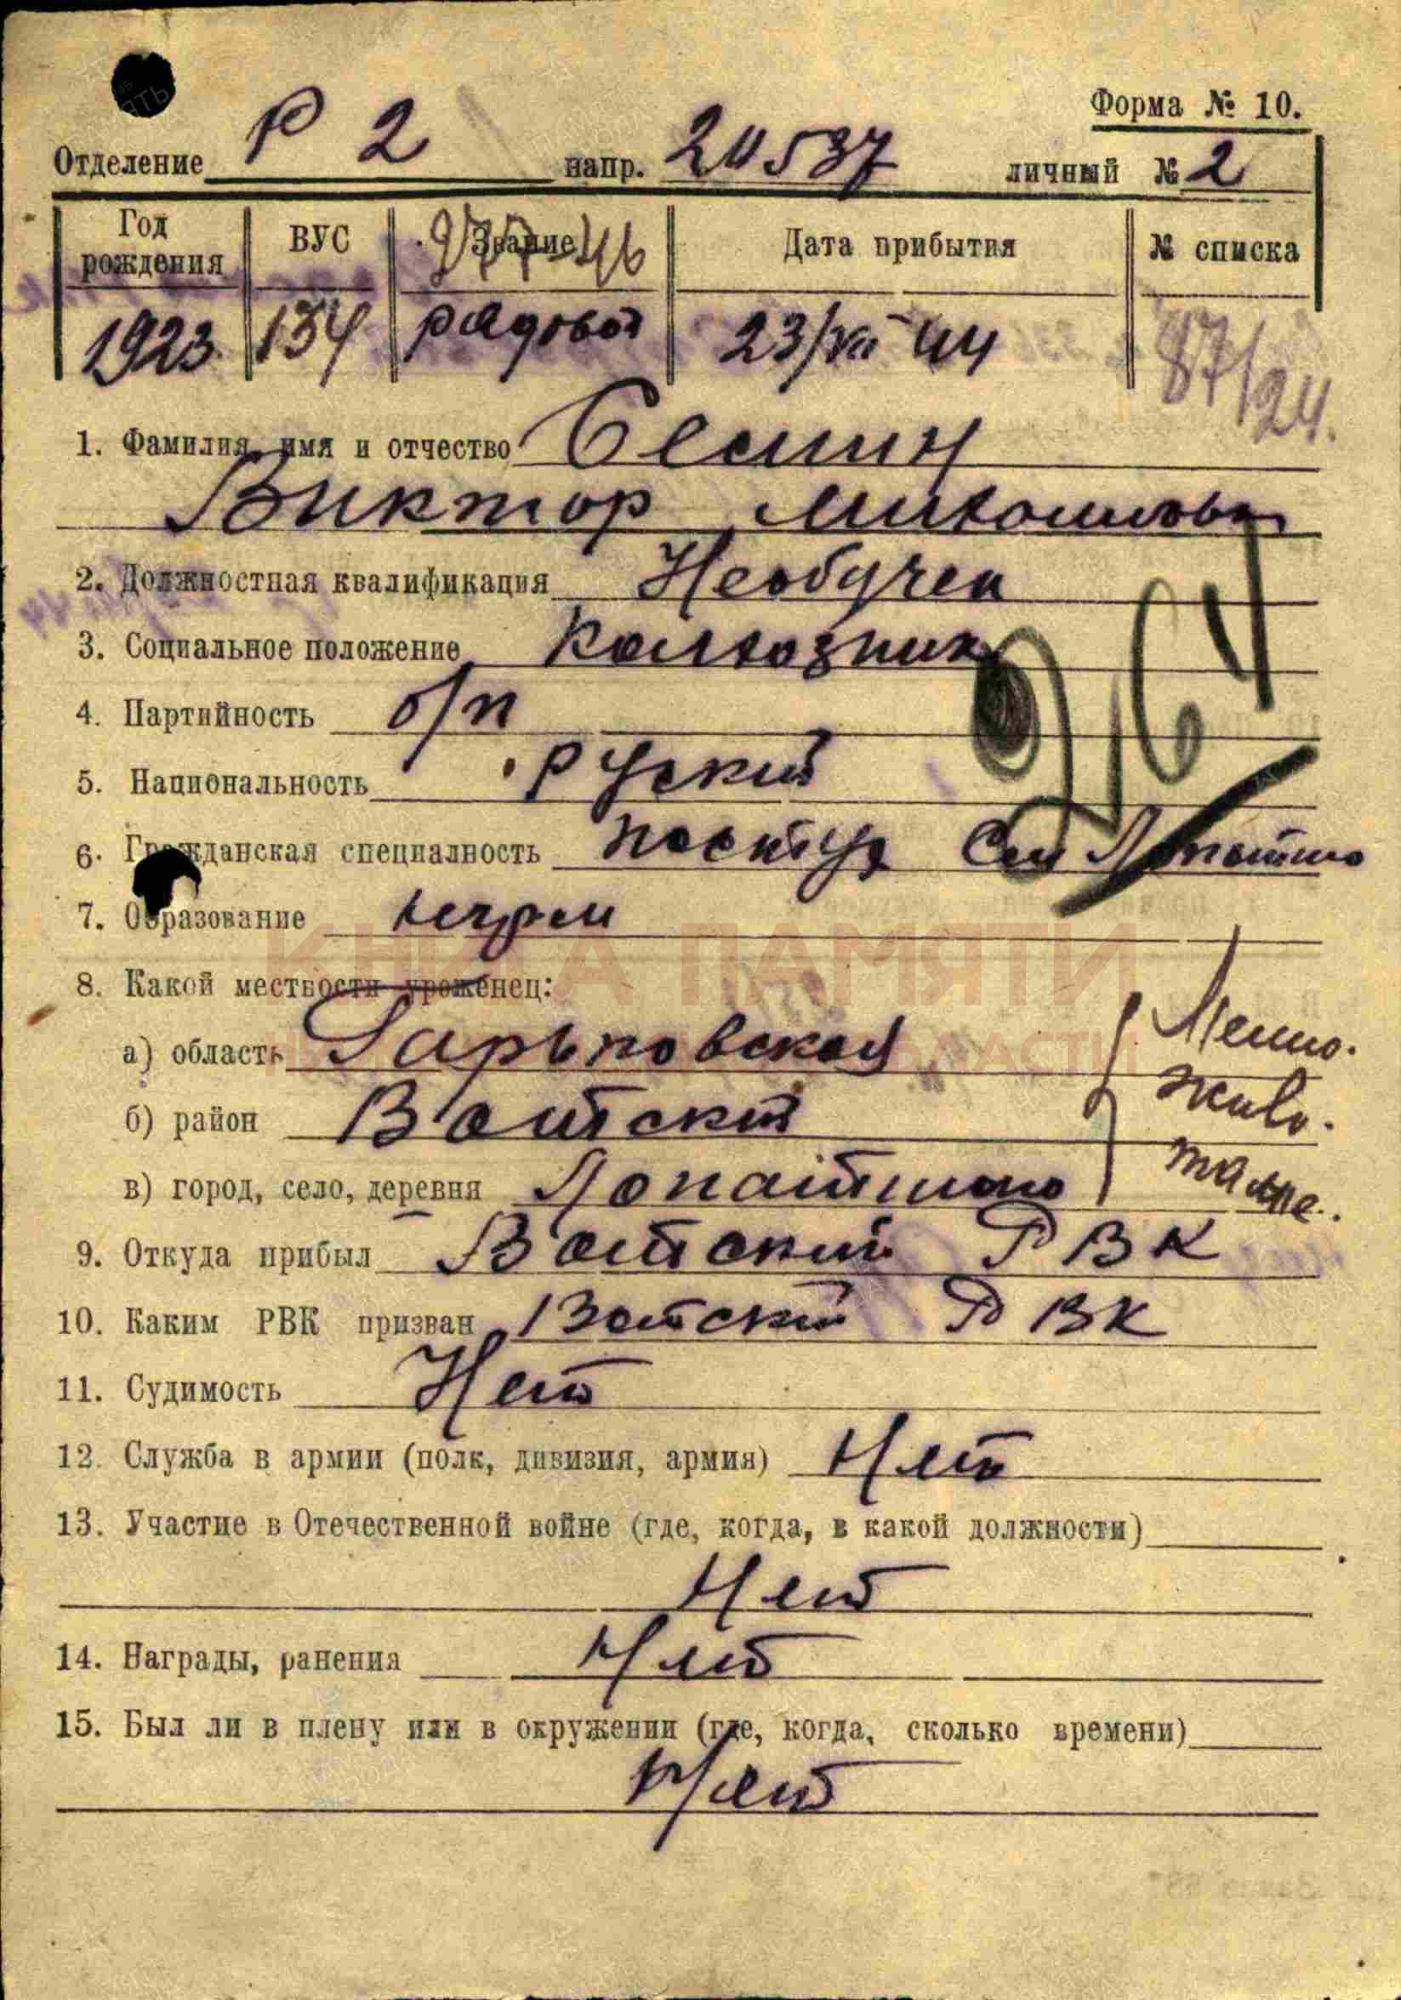 Форма № 10.
Отделение Р 2 напр. 24537 личный № 2
Год рождения ВУС Звание Дата прибытия № списка
277-46
1923 134 рядовой 23/VII 44 87/24.
1. Фамилия, имя и отчество Семин
Виктор
2. Должностная квалификация Необучен
3. Социальное положение Колхозник
264
4. Партийность б/п
5. Национальность Руский
6. Гражданская специалность пастух Сел Лопатино
7. Образование
8. Какой местности уроженец:
а) область Гарьковская
б) район Ватский
в) город, село, деревня Лопатино
Место. живо. тание.
9. Откуда прибыл Ватский РВК
10. Каким РВК призван Ватский РВК
11. Судимость Нет
12. Служба в армии (полк, дивизия, армия) Нет
13. Участие в Отечественной войне (где, когда, в какой должности)
Нет
14. Награды, ранения Нет
15. Был ли в плену или в окружении (где, когда, сколько времени)
Нет
КНИГА ПАМЯТИ
НИЖЕГОРОДСКОЙ ОБЛАСТИ